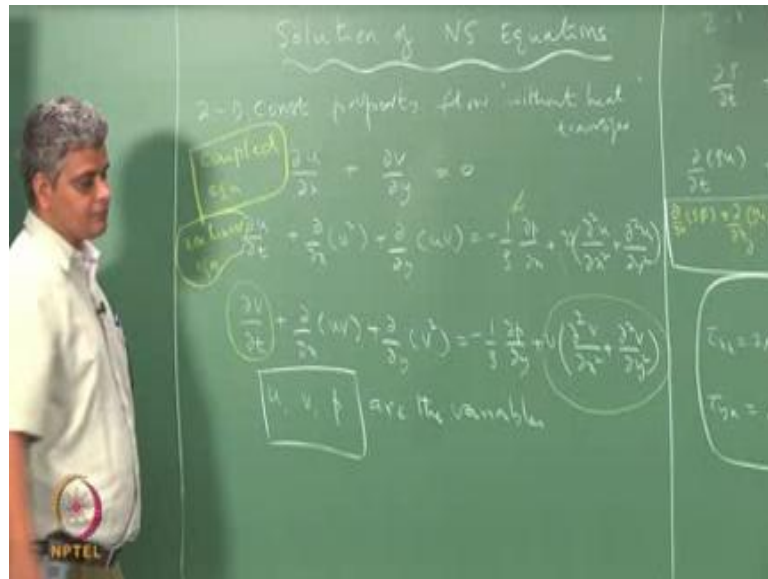 Solution of NS Equations
2-D, Const property flow 'without heat transfer'
coupled eqn
∂u/∂x + ∂v/∂y = 0
∂u/∂t + ∂/∂x (u²) + ∂/∂y (uv) = -1/ρ ∂p/∂x + ν(∂²u/∂x² + ∂²u/∂y²)
∂v/∂t + ∂/∂x (uv) + ∂/∂y (v²) = -1/ρ ∂p/∂y + ν(∂²v/∂x² + ∂²v/∂y²)
u, v, p are the variables
2-D
∂ρ/∂t +
∂/∂t (ρu) +
NPTEL